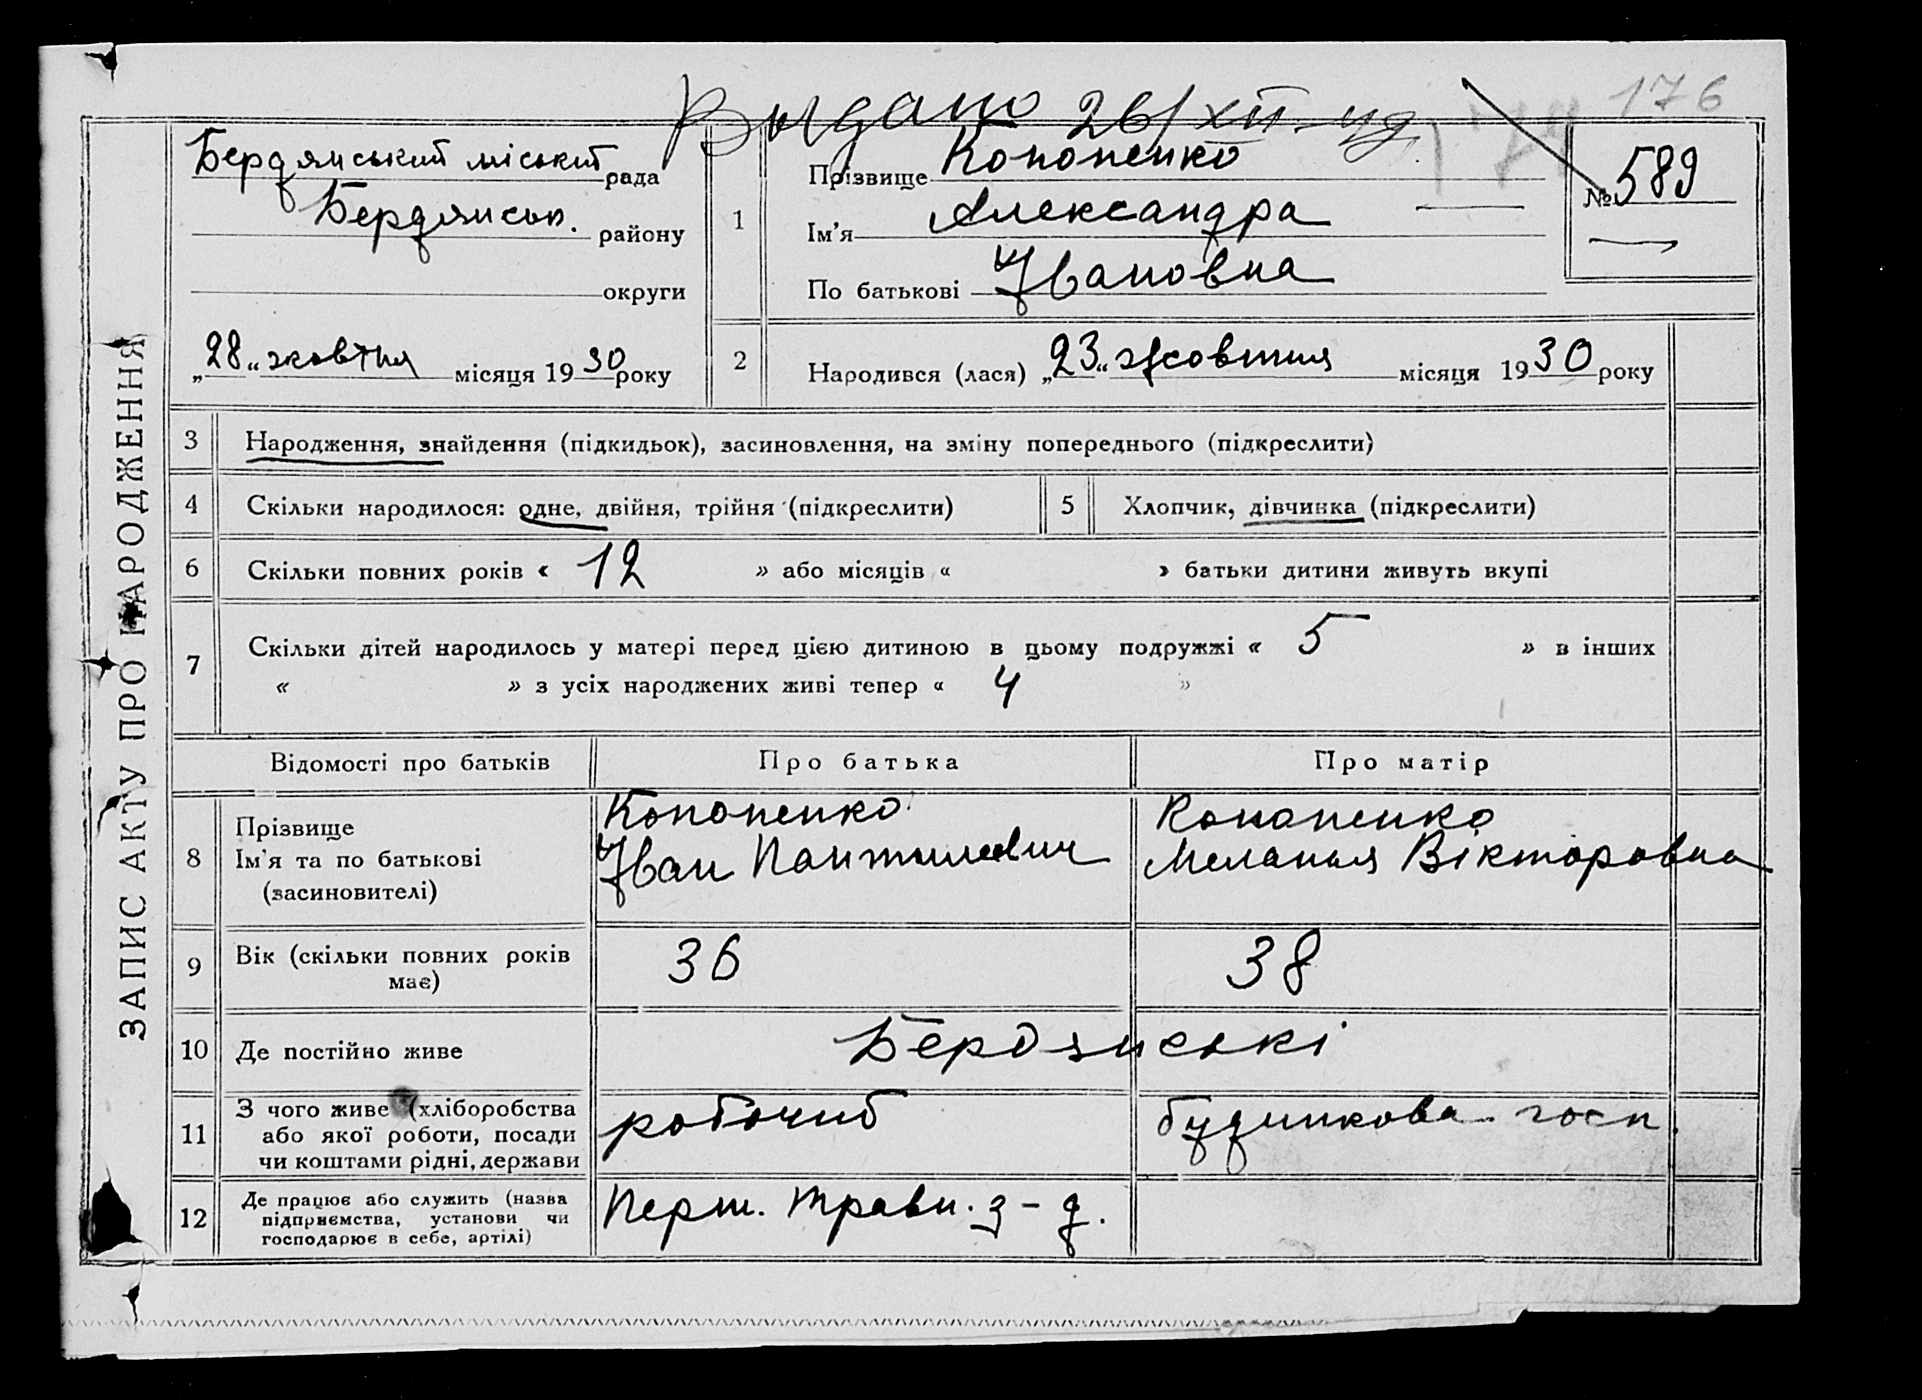 Выдано 26/XII
176
Бердянський міський рада
Бердянськ. району
округи
„28“ жовтня місяця 1930 року
1
Прізвище Кононенко
Ім’я Александра
По батькові Ивановна
№ 589
2
Народився (лася) „23“ жовтня місяця 1930 року
ЗАПИС АКТУ ПРО НАРОДЖЕННЯ
3 Народження, знайдення (підкидьок), засиновлення, на зміну попереднього (підкреслити)
4 Скільки народилося: одне, двійня, трійня (підкреслити) 5 Хлопчик, дівчинка (підкреслити)
6 Скільки повних років « 12 » або місяців « » батьки дитини живуть вкупі
7 Скільки дітей народилось у матері перед цією дитиною в цьому подружжі « 5 » в інших
« » з усіх народжених живі тепер « 4 »
Відомості про батьків Про батька Про матір
8
Прізвище
Ім’я та по батькові
(засиновителі)
Кононенко
Иван
Кононенко
Меланья Вікторовна
9 Вік (скільки повних років
має)
36 38
10 Де постійно живе Бердянські
11
З чого живе (хліборобства
або якої роботи, посади
чи коштами рідні, держави
робочий
будинкова госп.
12
Де працює або служить (назва
підприємства, установи чи
господарює в себе, артілі)
Перш. Травн. з-д.